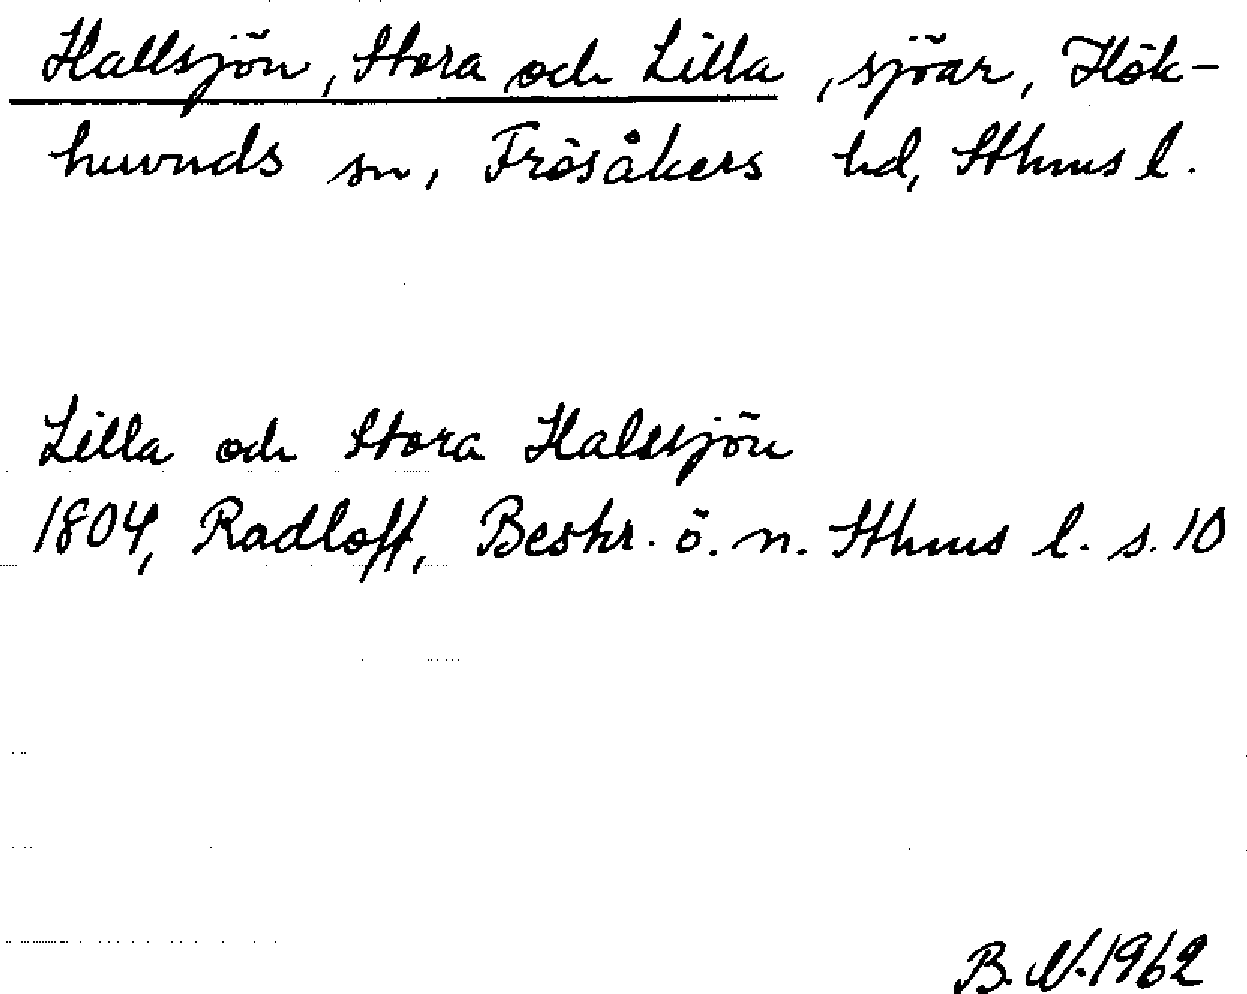 Hallsjön, Stora och Lilla, sjöar, Hök-
huvuds sn, Frösåkers hd, Sthms l.
Lilla och Stora Halssjön
1804, Radloff, Beskr. ö. n. Sthms l. s. 10
B. N. 1962